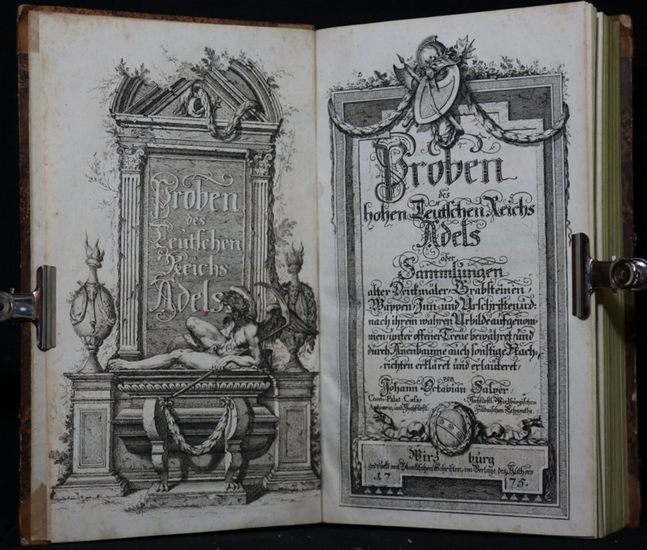 Proben
des
Teutschen
Reichs
Adels
Proben
des
hohen Teutschen Reichs
Adels
oder
Sammlungen
alter Denkmäler, Grabsteinen/
Wappen/ Inn- und Urschriften u:d:
nach ihrem wahren Urbilde aufgenom-
men/ unter offener Treu bewähret/ und
durch Anenbaume auch sonstige Nach-
richten erkläret und erläuteret/
von
Johann Octavian Salver
Com: Palat: Caes:
Wirz burg
gedruckt mit Schriften, im Verlage des Authors
17 75.